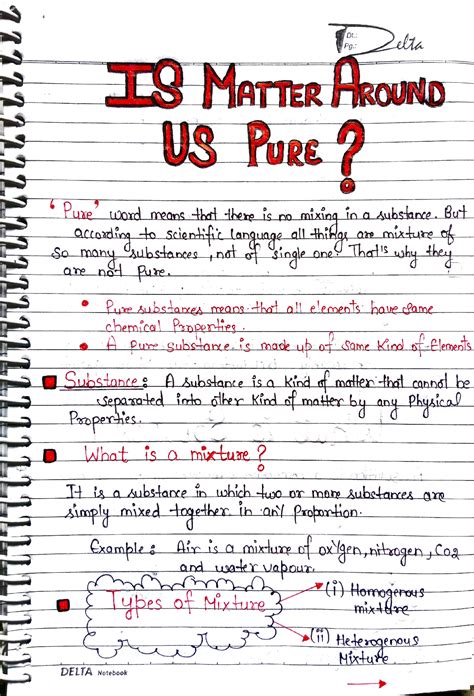 Dt.:
Pg.:
Delta
IS MATTER AROUND
US PURE?
'Pure' word means that there is no mixing in a substance. But
according to scientific language all things are mixture of
so many substances, not of single one. That's why they
are not Pure.
• Pure substances means that all elements have same
chemical Properties.
• A pure substance is made up of same kind of Elements
Substance: A substance is a kind of matter that cannot be
separated into other kind of matter by any Physical
Properties.
What is a mixture?
It is a substance in which two or more substances are
simply mixed together in any proportion.
Example: Air is a mixture of oxygen, nitrogen, CO2
and water vapour.
Types of Mixture
(i) Homogenous
mixture
(ii) Heterogenous
Mixture
DELTA Notebook